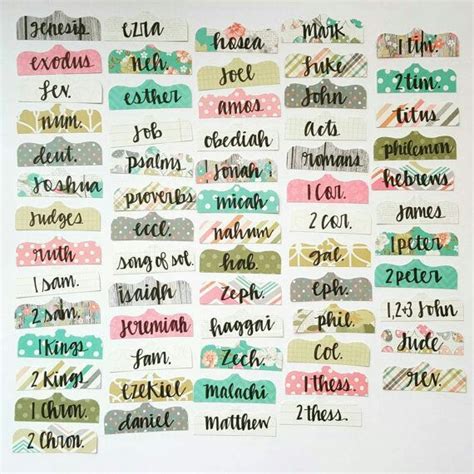 genesis
exodus
Lev.
num.
deut.
Joshua
Judges
ruth
1 sam.
2 sam.
1 Kings
2 Kings
1 Chron.
2 Chron.
ezra
neh.
esther
Job
psalms
proverbs
eccl.
song of sol.
isaiah
Jeremiah
Lam.
ezekiel
daniel
hosea
Joel
amos
obediah
Jonah
micah
nahum
hab.
Zeph.
haggai
Zech.
malachi
Matthew
Mark
Luke
John
acts
romans
1 Cor.
2 cor.
gal.
eph.
phil.
Col.
1 thess.
2 thess.
1 tim.
2 tim.
titus
philemon
hebrews
James
1 peter
2 peter
1,2+3 John
Jude
rev.